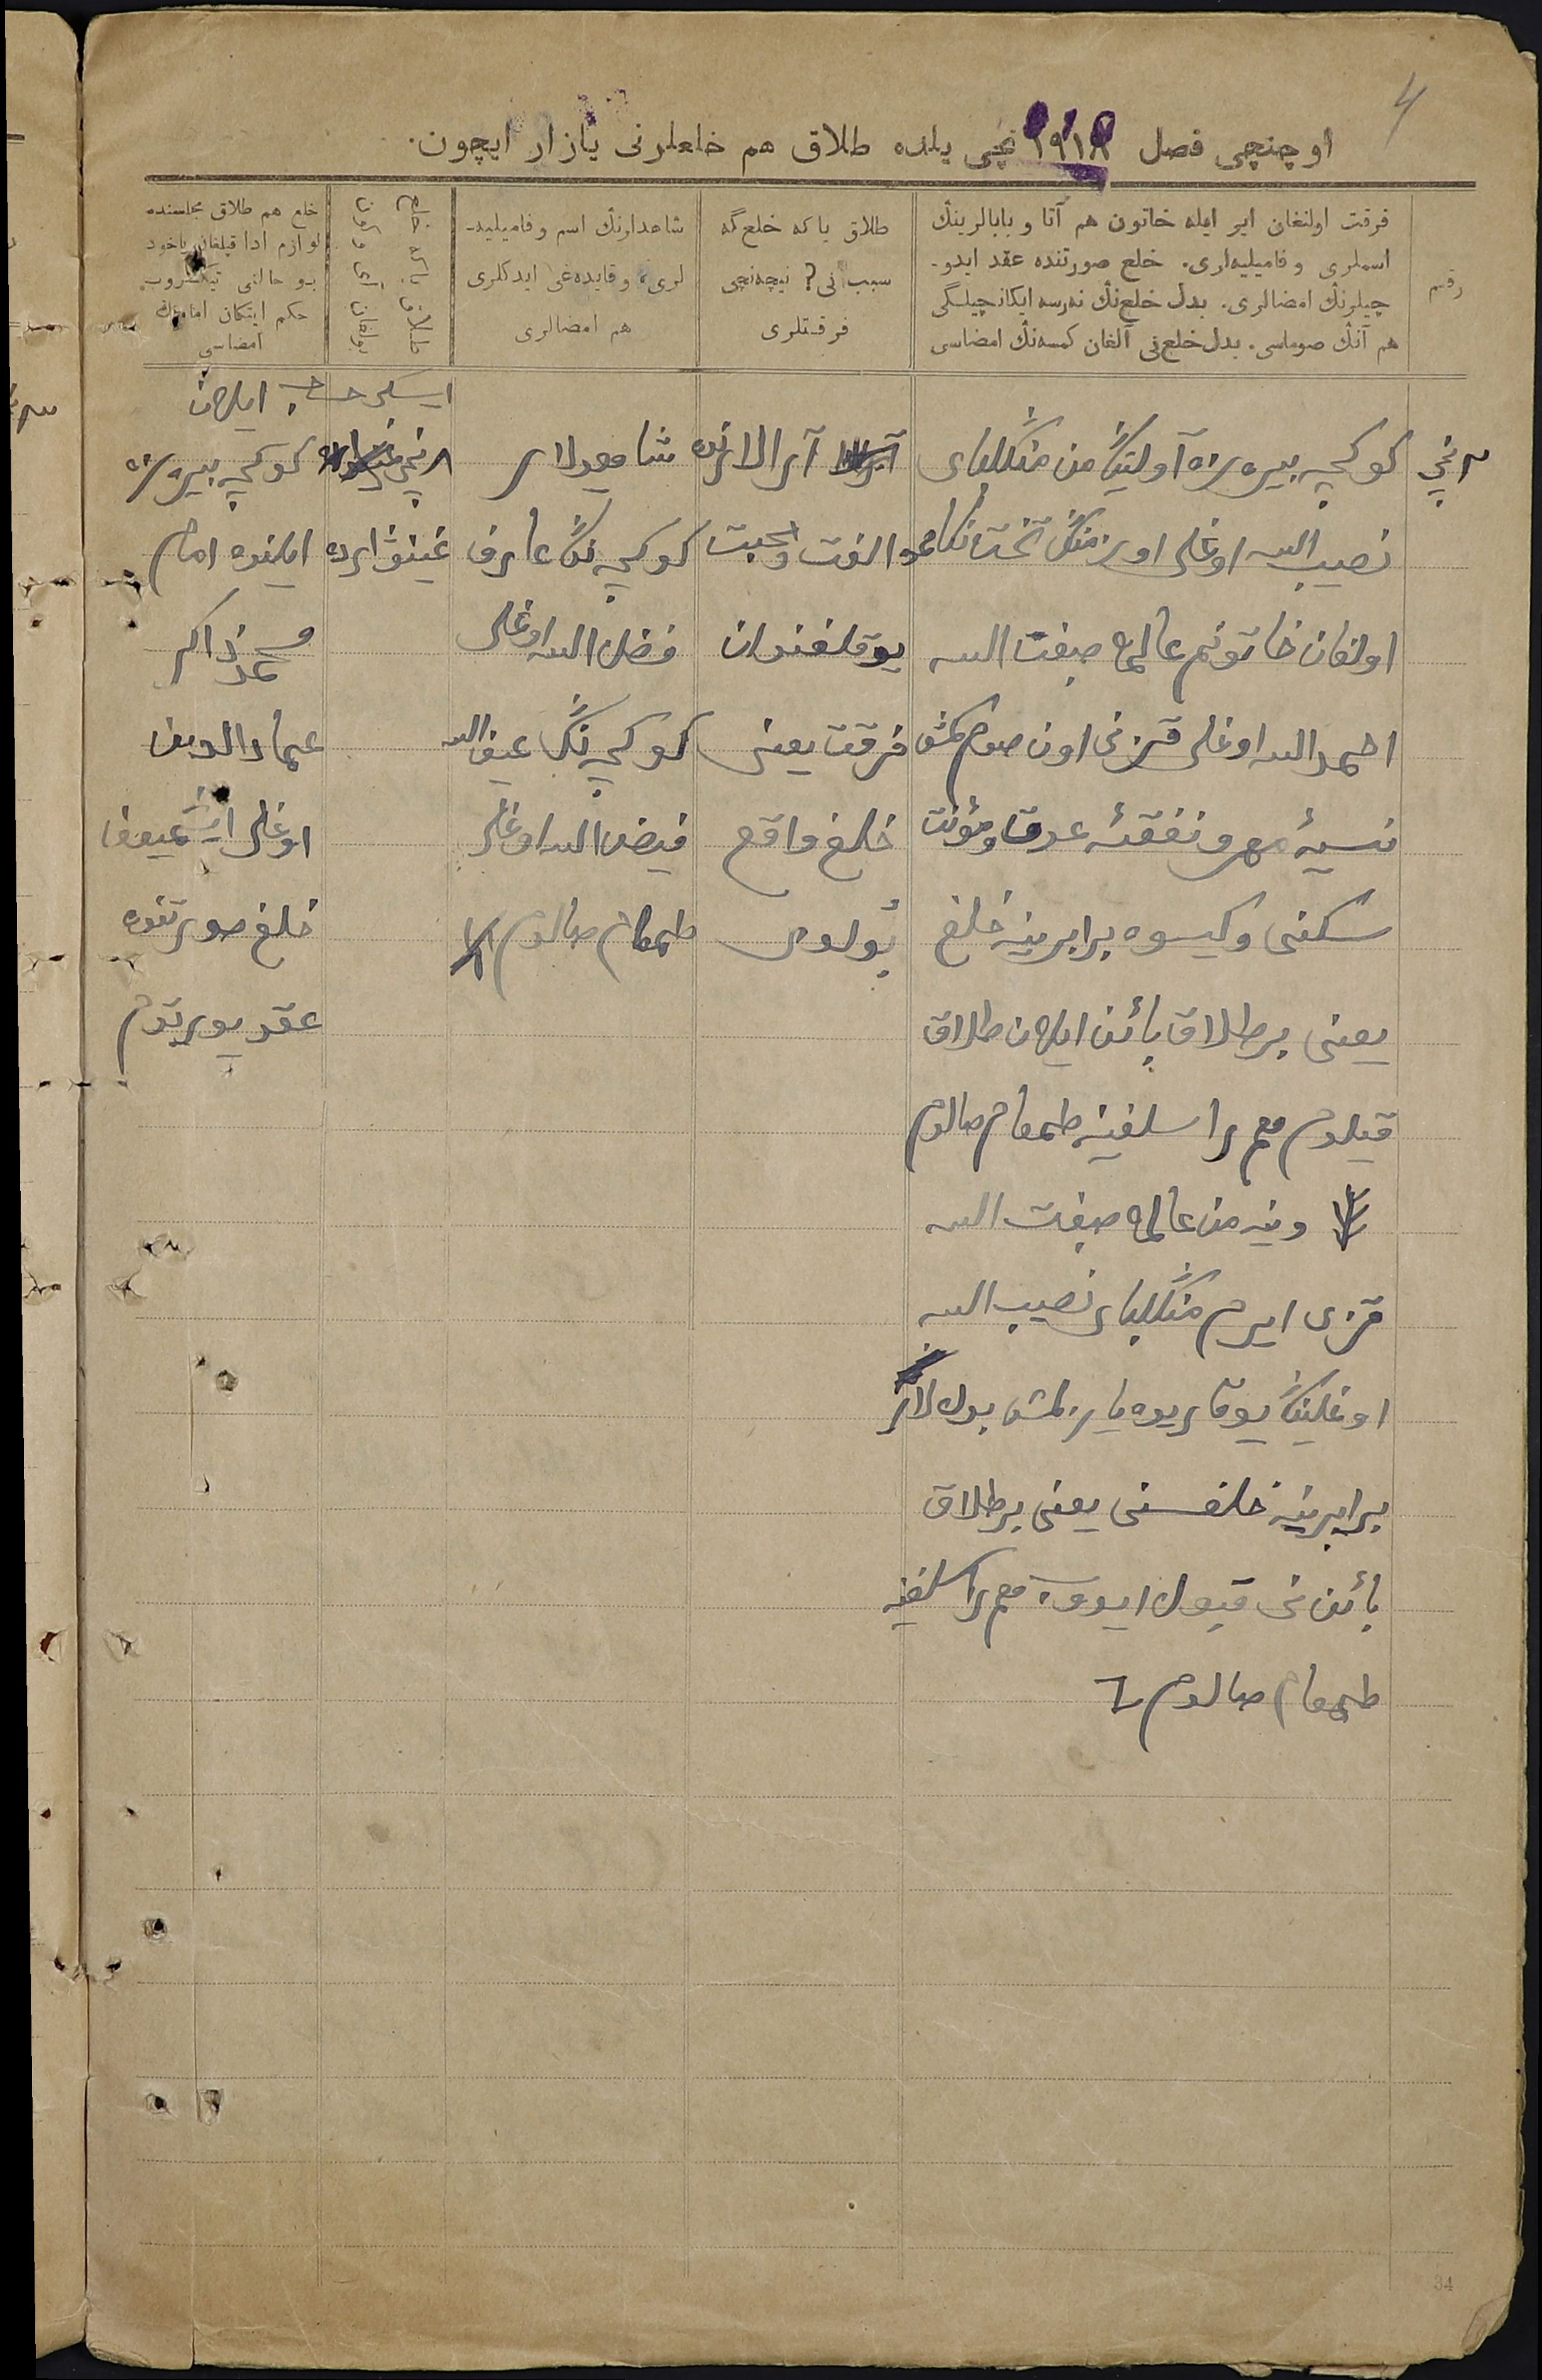 4
اوچنچی فصل ١٩١٨ نچی یلده طلاق هم خلعلرنی یازار ایچون.
رقم
فرقت اولنغان ایر ایله خاتون هم آتا و بابالرینڭ
اسملری و فامیلیه‌لری. خلع صورتنده عقد ایدو-
چیلرنڭ امضالری. بدل خلع‌نڭ نه‌رسه ایکانچیلگی
هم آنڭ صوماسی. بدل خلع‌نی آلغان کمسه‌نڭ امضاسی
طلاق یا که خلع‌گه
سبب نی؟ نیچه‌نچی
فرقتلری
شاهدلرنڭ اسم و فامیلیه-
لری، و قایده‌غی ایدکلری
هم امضالری
طلاق یا که خلع
بولغان آی و کون
خلع هم طلاق مجلسنده
لوازم ادا قیلغان یاخود
بو حالنی تیکشروب
حکم ایتکان امام‌نڭ
امضاسی
ایسکی حساب ایلان
٢ نچی
کوکچه بیره‌زه آولینڭ من منگلبای
نصیب الله اوغلی اوزمنڭ تحت نکاحمده
اولغان خاتونم عالمه صبغت الله
احمد الله اوغلی قزنی اون صوم کمش
نسیهٔ مهر و نفقهٔ عدت و مؤنت
سکنی و کیسوه برابرینه خلع
یعنی بر طلاق بائن ایلان طلاق
قیلدم هم راسلغینه طمغام صالدم
وینه من عالمه صبغت الله
قزی ایرم منگلبای نصیب الله
اوغلینڭ یوقاریده یازلمش بدل لار
برابرینه خلعسنی یعنی بر طلاق
بائن نی قبول ایدوب هم راسلغینه
طمغام صالدم
آرالارنده
الفت و محبت
یوقلغندان
فرقت یعنی
خلع واقع
بولدی
شاهدلار
کوکچه نڭ عارف
فضل الله اوغلی
کوکچه نڭ
فیض الله اوغلی
طمغام صالدم
٨ نچی
غینوارده
کوکچه بیره‌زه
ایلنده امام
محمد ذاکر
عماد الدین
اوغلی
خلع صورتنده
عقد یورتدم
34